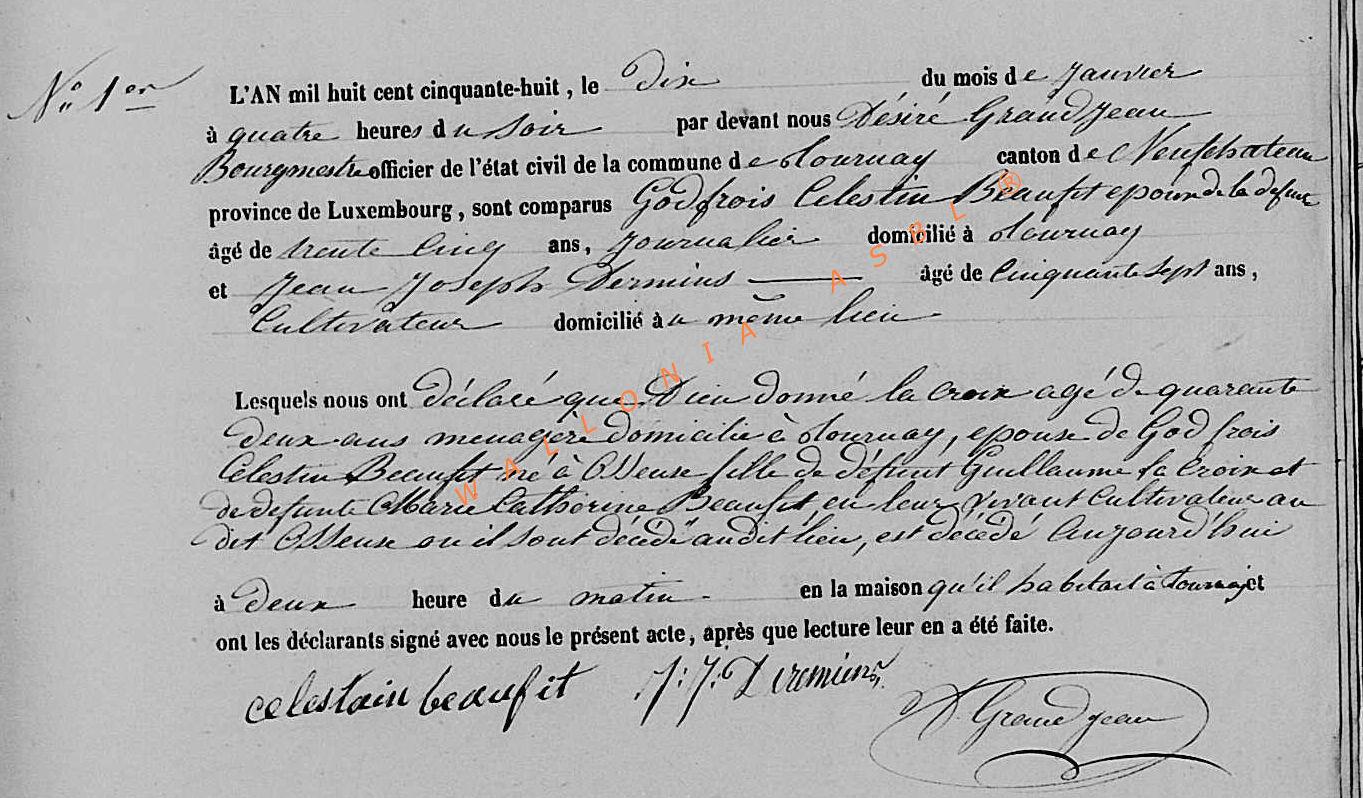 N° 1er
L'AN mil huit cent cinquante-huit, le Dix du mois de Janvier
à quatre heures du Soir par devant nous Désiré Grandjean
Bourgmestre officier de l'état civil de la commune de tournay canton de Neufchateau
province de Luxembourg, sont comparus Godfrois Celestin Beaufet epoux de la defunte
âgé de trente Cinq ans, Journalier domicilié à tournay
et Jean Joseph Dermins âgé de Cinquante Sept ans,
Cultivateur domicilié à u même lieu
Lesquels nous ont déclaré que Dieu donné la croix agé de quarante
deux ans menagère domicilié à tournay, epouse de Godfrois
Celestin Beaufet né à Osseuse fille de défunt Guillaume la Croix et
de defunte Marie Catherine Beaufet, en leur vivant Cultivateur au
dit Osseuse ou il sont décédé audit lieu, est décédé Aujourd'hui
à deux heure du matin en la maison qu'il habitait à tournay et
ont les déclarants signé avec nous le présent acte, après que lecture leur en a été faite.
celestain beaufit J: J: Deremins
D. Grandjean
WALLONIA ASBL ®